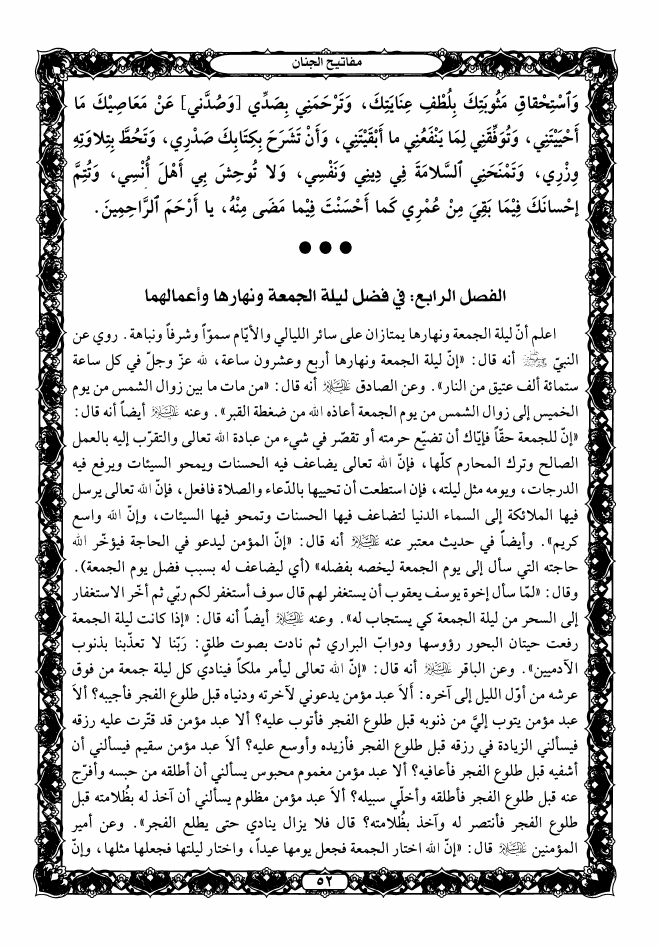 مفاتيح الجنان
وَٱسْتِحْقاقِ مَثُوبَتِكَ بِلُطْفِ عِنَايَتِكَ، وَتَرْحَمَنِي بِصَدِّي [وَصُدَّنِي] عَنْ مَعَاصِيْكَ مَا
أَحْيَيْتَنِي، وَتُوَفِّقَنِي لِمَا يَنْفَعُنِي ما أَبْقَيْتَنِي، وَأَنْ تَشْرَحَ بِكِتَابِكَ صَدْرِي، وَتَحُطَّ بِتِلاوَتِهِ
وِزْرِي، وَتَمْنَحَنِي ٱلسَّلامَةَ فِي دِينِي وَنَفْسِي، وَلا تُوحِشَ بِي أَهْلَ أُنْسِي، وَتُتِمَّ
إحْسانَكَ فِيْمَا بَقِيَ مِنْ عُمْرِي كَما أَحْسَنْتَ فِيْما مَضَى مِنْهُ، يا أَرْحَمَ ٱلرَّاحِمِينَ.
●●●
الفصل الرابع: في فضل ليلة الجمعة ونهارها وأعمالهما
اعلم أنّ ليلة الجمعة ونهارها يمتازان على سائر الليالي والأيّام سموّاً وشرفاً ونباهة. روي عن
النبيّ ﷺ أنه قال: «إنّ ليلة الجمعة ونهارها أربع وعشرون ساعة، لله عزّ وجلّ في كل ساعة
ستمائة ألف عتيق من النار». وعن الصادق عليه السلام أنه قال: «من مات ما بين زوال الشمس من يوم
الخميس إلى زوال الشمس من يوم الجمعة أعاذه الله من ضغطة القبر». وعنه عليه السلام أيضاً أنه قال:
«إنّ للجمعة حقّاً فإيّاك أن تضيّع حرمته أو تقصّر في شيء من عبادة الله تعالى والتقرّب إليه بالعمل
الصالح وترك المحارم كلّها، فإنّ الله تعالى يضاعف فيه الحسنات ويمحو السيئات ويرفع فيه
الدرجات، ويومه مثل ليلته، فإن استطعت أن تحييها بالدّعاء والصلاة فافعل، فإنّ الله تعالى يرسل
فيها الملائكة إلى السماء الدنيا لتضاعف فيها الحسنات وتمحو فيها السيئات، وإنّ الله واسع
كريم». وأيضاً في حديث معتبر عنه عليه السلام أنه قال: «إنّ المؤمن ليدعو في الحاجة فيؤخّر الله
حاجته التي سأل إلى يوم الجمعة ليخصه بفضله» (أي ليضاعف له بسبب فضل يوم الجمعة).
وقال: «لمّا سأل إخوة يوسف يعقوب أن يستغفر لهم قال سوف أستغفر لكم ربّي ثم أخّر الاستغفار
إلى السحر من ليلة الجمعة كي يستجاب له». وعنه عليه السلام أيضاً أنه قال: «إذا كانت ليلة الجمعة
رفعت حيتان البحور رؤوسها ودوابّ البراري ثم نادت بصوت طلقٍ: رَبّنا لا تعذّبنا بذنوب
الآدميين». وعن الباقر عليه السلام أنه قال: «إنّ الله تعالى ليأمر ملكاً فينادي كل ليلة جمعة من فوق
عرشه من أوّل الليل إلى آخره: أَلاَ عبد مؤمن يدعوني لآخرته ودنياه قبل طلوع الفجر فأجيبه؟ ألاَ
عبد مؤمن يتوب إليَّ من ذنوبه قبل طلوع الفجر فأتوب عليه؟ ألا عبد مؤمن قد قتّرت عليه رزقه
فيسألني الزيادة في رزقه قبل طلوع الفجر فأزيده وأوسع عليه؟ ألاَ عبد مؤمن سقيم فيسألني أن
أشفيه قبل طلوع الفجر فأعافيه؟ ألا عبد مؤمن مغموم محبوس يسألني أن أطلقه من حبسه وأفرّج
عنه قبل طلوع الفجر فأطلقه وأخلّي سبيله؟ ألاَ عبد مؤمن مظلوم يسألني أن آخذ له بظُلامته قبل
طلوع الفجر فأنتصر له وآخذ بظُلامته؟ قال فلا يزال ينادي حتى يطلع الفجر». وعن أمير
المؤمنين عليه السلام قال: «إنّ الله اختار الجمعة فجعل يومها عيداً، واختار ليلتها فجعلها مثلها، وإنّ
٥٢